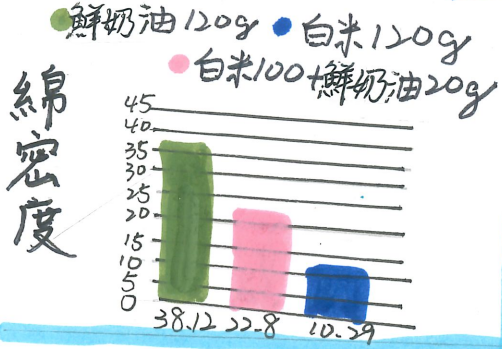 鮮奶油120g 白米120g
白米100+鮮奶油20g
綿密度
45
40
35
30
25
20
15
10
5
0
38.12 22.8 10.29